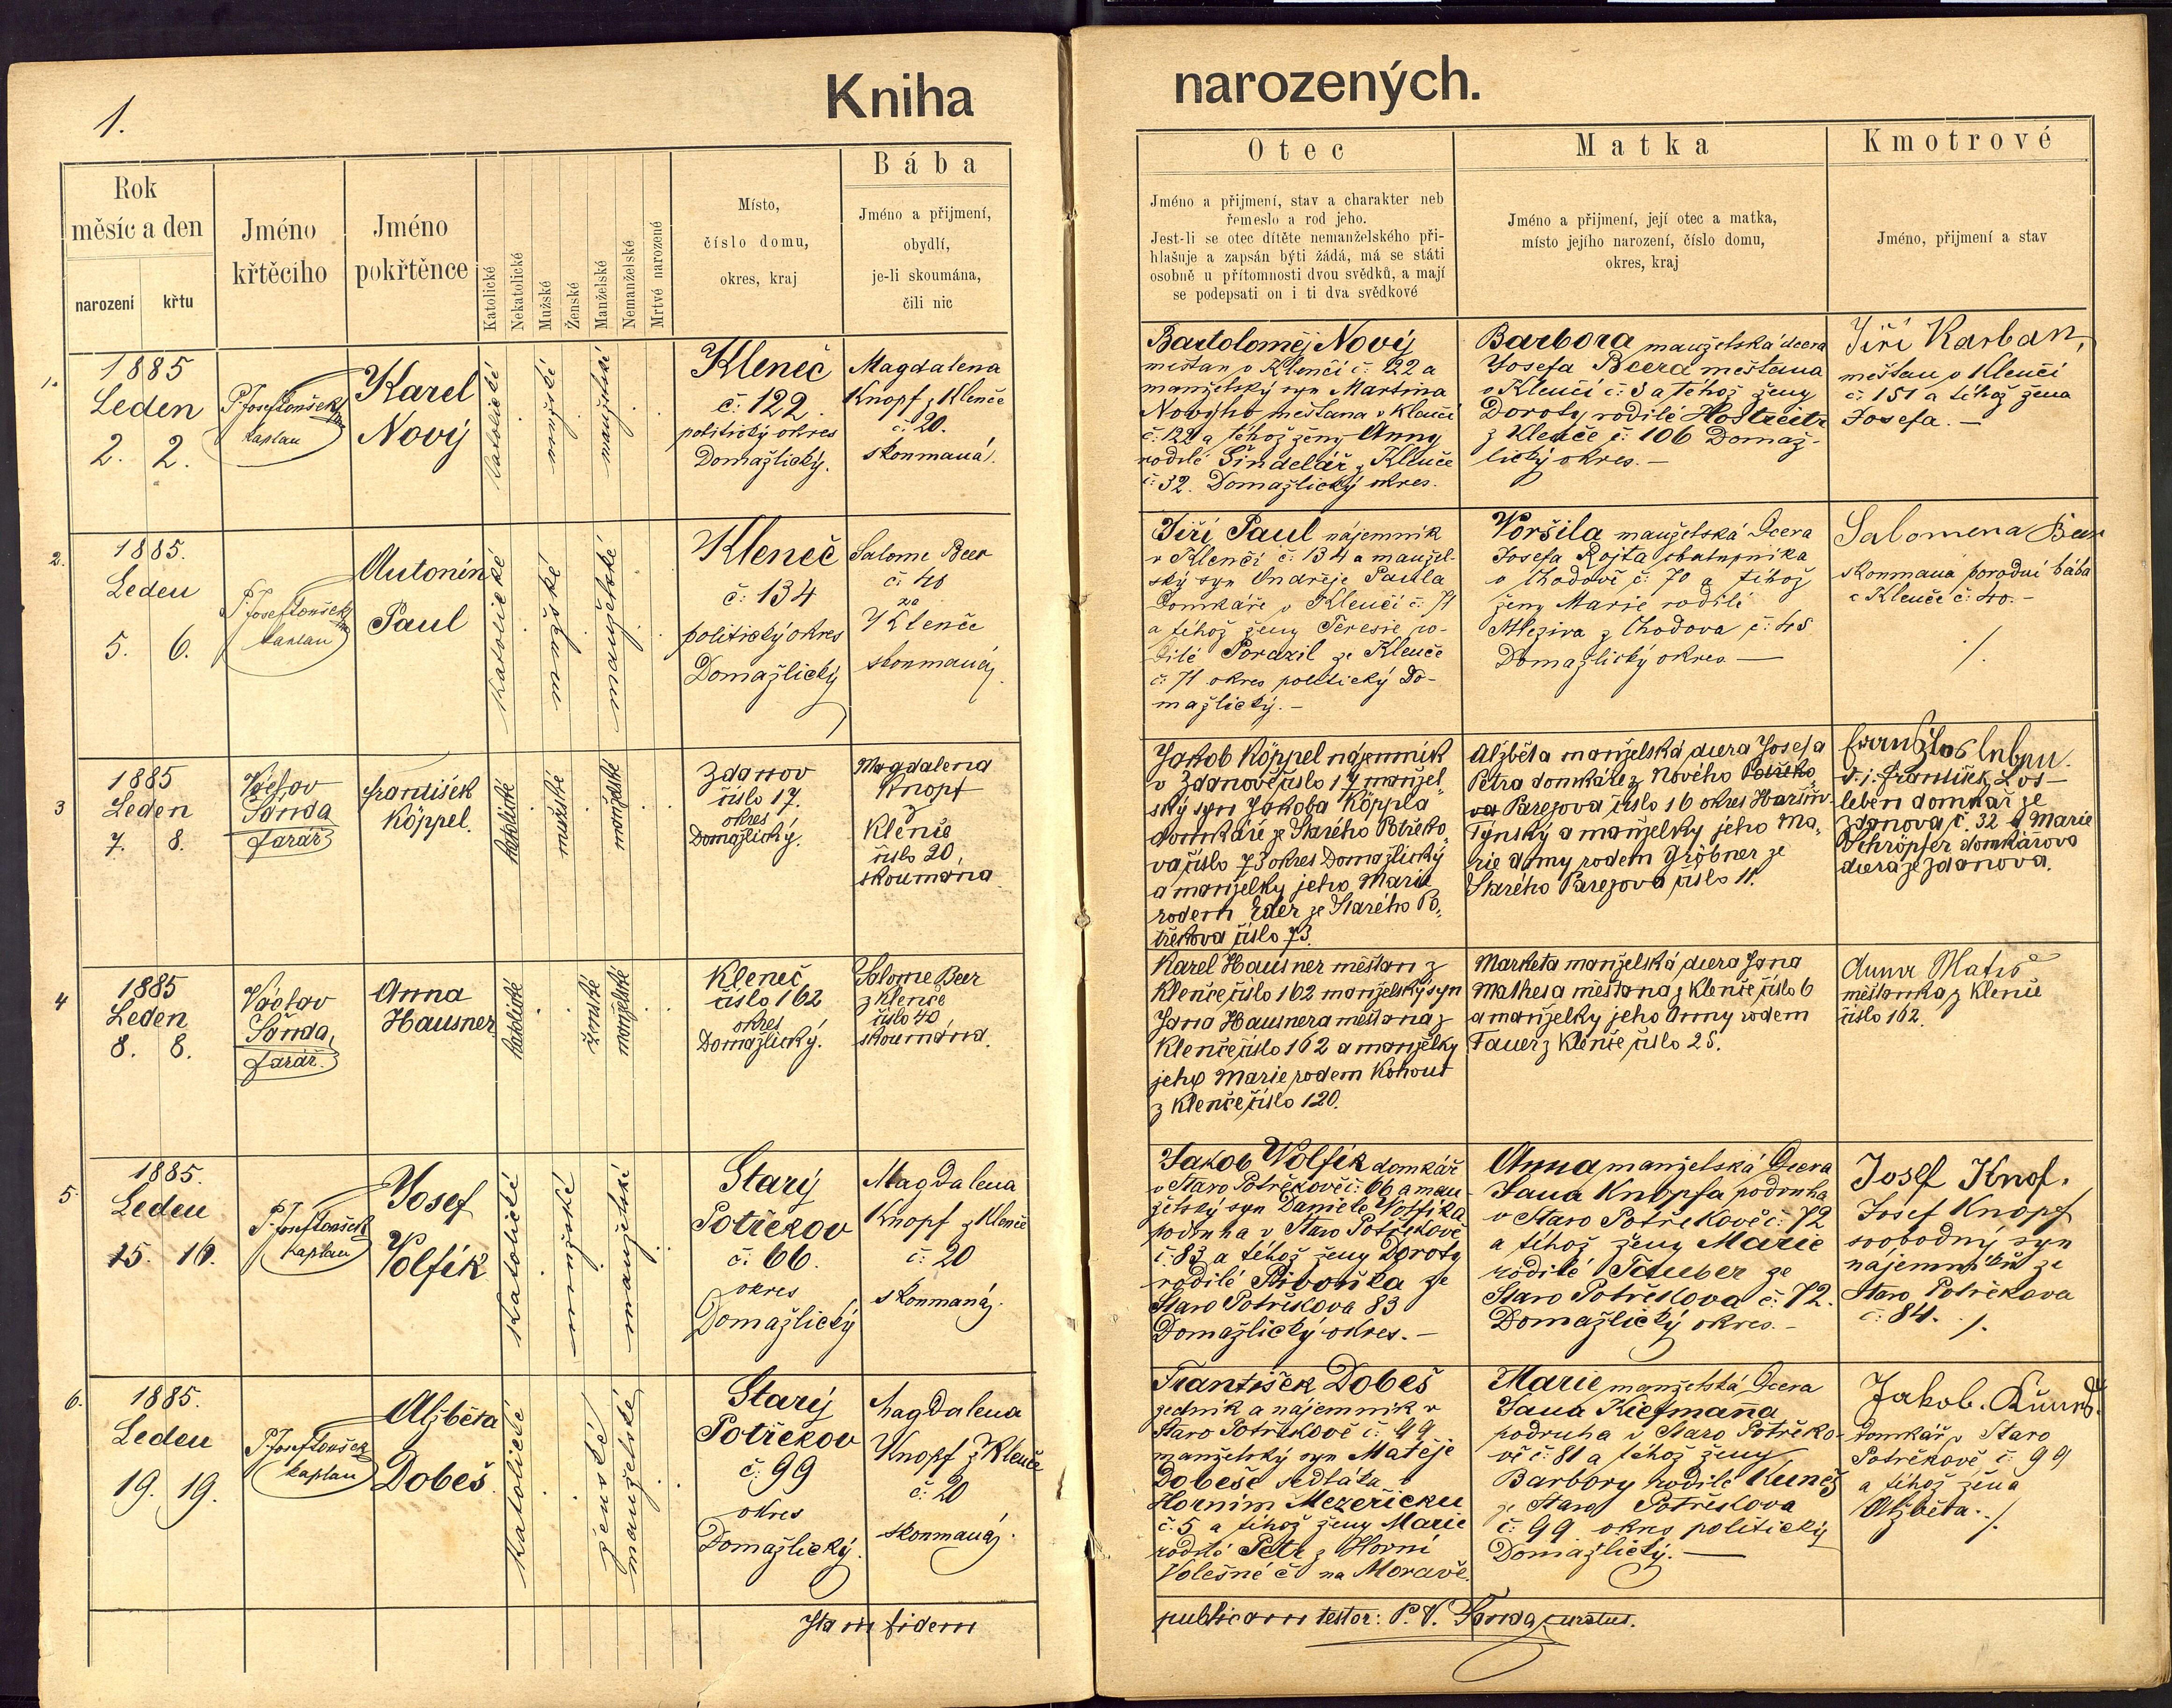 1.
Kniha
narozených.
Rok
měsíc a den
narození
křtu
Jméno
křtěcího
Jméno
pokřtěnce
Katolické
Nekatolické
Mužské
Ženské
Manželské
Nemanželské
Mrtvé narozené
Místo,
číslo domu,
okres, kraj
Bába
Jméno a přijmení,
obydlí,
je-li skoumána,
čili nic
Otec
Jméno a přijmení, stav a charakter neb
řemeslo a rod jeho.
Jest-li se otec dítěte nemanželského při-
hlašuje a zapsán býti žádá, má se státi
osobně u přítomnosti dvou svědků, a mají
se podepsati on i ti dva svědkové
Matka
Jméno a přijmení, její otec a matka,
místo jejího narození, číslo domu,
okres, kraj
Kmotrové
Jméno, přijmení a stav
1.
1885
Leden
2. 2.
P. Josef
kaplan
Karel
Nový
katolické
mužské
manželské
Kleneč
č: 122.
politický okres
Domažlický.
Magdalena
Knopf z Klenče
č. 20.
skoumaná.
Bartoloměj Nový
měštan v Klenči č. 22 a
manželský syn Martina
Nového měštana v Klenči
č: 122 a téhož ženy Anny
rodilé Šindelář z Klenče
č: 32. Domažlický okres.
Barbora manželská dcera
Josefa Beera měštana
v Klenči č: 3 a téhož ženy
Doroty rodilé
z Klenče č: 106 Domaž-
lický okres. –
Jiří Karban,
měštan v Klenči
č: 151 a téhož žena
Josefa. –
2.
1885.
Leden
5. 6.
P. Josef
kaplan
Antonín
Paul
katolické
mužské
manželské
Kleneč
č: 134
politický okres
Domažlický
Salome Beer
č. 40
ze
Klenče
skoumaná.
Jiří Paul nájemník
v Klenči č. 134 a manžel-
ský syn Ondřeje Paula
domkáře v Klenči č: 71
a téhož ženy Teresie ro-
dilé Porazil ze Klenče
č: 71 okres politický Do-
mažlický. –
Voršila manželská dcera
Josefa Rojta chalupníka
v Chodově č: 70 a téhož
ženy Marie rodilé
Mleziva z Chodova č: 45
Domažlický okres –
Salomena Beer
skoumaná porodní bába
z Klenče č: 40. –
/.
3
1885
Leden
7. 8.
Václav
Šonda
farář
František
Köppel.
katolické
mužské
manželské
Zdanov
číslo 17.
okres
Domažlický.
Magdalena
Knopf
z
Klenče
číslo 20,
skoumaná
Jakob Köppel nájemník
v Zdanově číslo 17 manžel-
ský syn Jakoba Köppla
domkáře ze Starého Potřeko-
va číslo 73 okres Domažlický
a manželky jeho Marie
rodem Eder ze Starého Po-
třekova číslo 73.
Alžběta manželská dcera Josefa
Petra domkáře z Nového
Parezova číslo 16 okres Haršov-
Týnský a manželky jeho Ma-
rie Anny rodem Gröbner ze
Starého Parezova číslo 11.
t. j. František Los-
leben domkář ze
Zdanova č. 32 a Marie
Schröpfer domkářova
dcera ze Zdanova.
4
1885
Leden
8. 8.
Václav
Šonda,
farář.
Anna
Hausner
katolické
ženské
manželské
Kleneč
číslo 162
okres
Domažlický.
Salome Beer
z Klenče
číslo 40
skoumána.
Karel Hausner měštan z
Klenče číslo 162 manželský syn
Jana Hausnera měštana z
Klenče číslo 162 a manželky
jeho Marie rodem Kohout
z Klenče číslo 120.
Marketa manželská dcera Jana
Mathesa měštana z Klenče číslo 6
a manželky jeho Anny rodem
Tauer z Klenče číslo 25.
Anna
měštanka z Klenče
číslo 162.
5.
1885.
Leden
15. 16.
P. Josef
kaplan
Josef
Volfík
katolické
mužské
manželské
Starý
Potřekov
č. 66.
okres
Domažlický
Magdalena
Knopf z Klenče
č: 20
skoumaná.
Jakob Volfík domkář
v Staro Potřekově č: 66 a man-
želský syn Daniele Volfíka
podruha v Staro Potřekově
č: 83 a téhož ženy Doroty
rodilé Pivoňka ze
Staro Potřekova 83
Domažlický okres. –
Anna manželská dcera
Jana Knopfa podruha
v Staro Potřekově č: 72
a téhož ženy Marie
rodilé Tauber ze
Staro Potřekova č: 72.
Domažlický okres. –
Josef Knof.
Josef Knopf
svobodný syn
nájemníků ze
Staro Potřekova
č: 84. /.
6.
1885.
Leden
19. 19.
P. Josef
kaplan
Alžběta
Dobeš
katolické
ženské
manželské
Starý
Potřekov
č: 99
okres
Domažlický.
Magdalena
Knopf z Klenče
č: 20
skoumaná.
František Dobeš
zedník a nájemník v
Staro Potřekově č: 99
manželský syn Matěje
Dobeše sedláka v
Horním Mezeříčku
č. 5 a téhož ženy Marie
rodilé Petr z Horní
Volešné č na Moravě.
Marie manželská dcera
Jana Kiefmanna
podruha v Staro Potřeko-
vě č: 81 a téhož ženy
Barbory rodilé Kuneš
ze Staro Potřekova
č: 99 okres politický
Domažlický. –
Jakob.
domkář v Staro
Potřekově č: 99
a téhož žena
Alžběta. /.
Ita in fidem
publicam testor: P. V. Šonda, curatus.